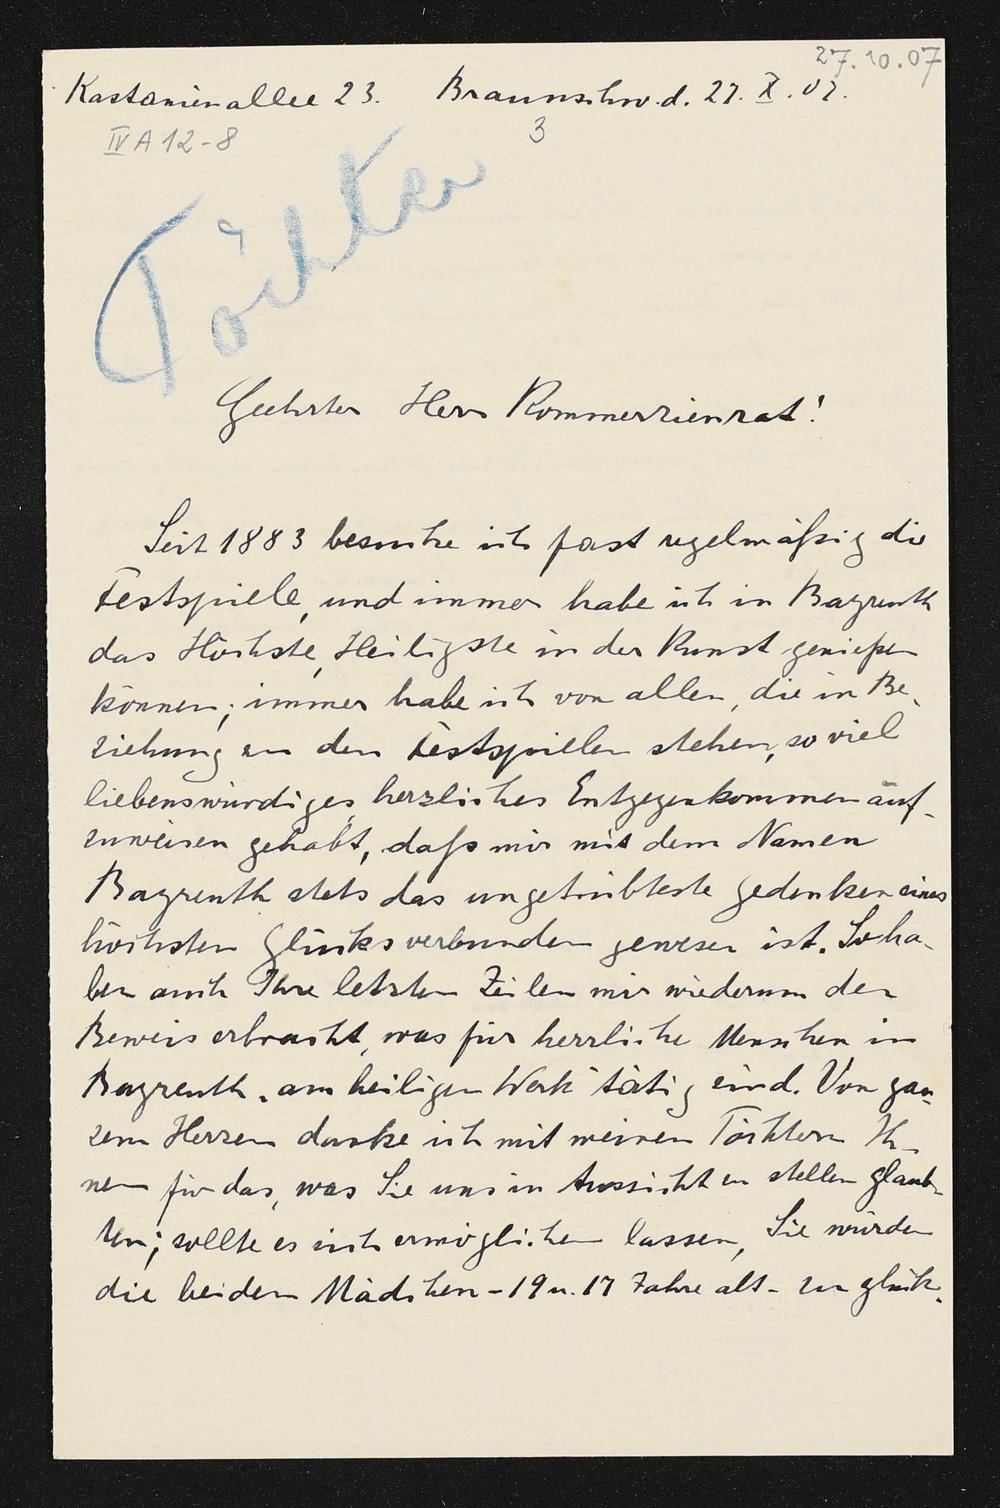 27.10.07
Kastanienallee 23. Braunschw. d. 27. X. 07.
IV A 12-8
3
Töchter
Geehrter Herr Kommerzienrat!
Seit 1883 besuche ich fast regelmäßig die
Festspiele, und immer habe ich in Bayreuth
das Höchste, Heiligste in der Kunst genießen
können; immer habe ich von allen, die in Be-
ziehung zu den Festspielen stehen, so viel
liebenswürdiges, herzliches Entgegenkommen auf-
zuweisen gehabt, daß mir mit dem Namen
Bayreuth stets das ungetrübteste Gedenken eines
höchsten Glücks verbunden gewesen ist. So ha-
ben auch Ihre letzten Zeilen mir wiederum den
Beweis erbracht, was für herrliche Menschen in
Bayreuth „am heiligen Werk“ tätig sind. Von gan-
zem Herzen danke ich mit meinen Töchtern Ih-
nen für das, was Sie uns in Aussicht zu stellen glaub-
ten; sollte es sich ermöglichen lassen, Sie würden
die beiden Mädchen - 19 u. 17 Jahre alt - zu glück-